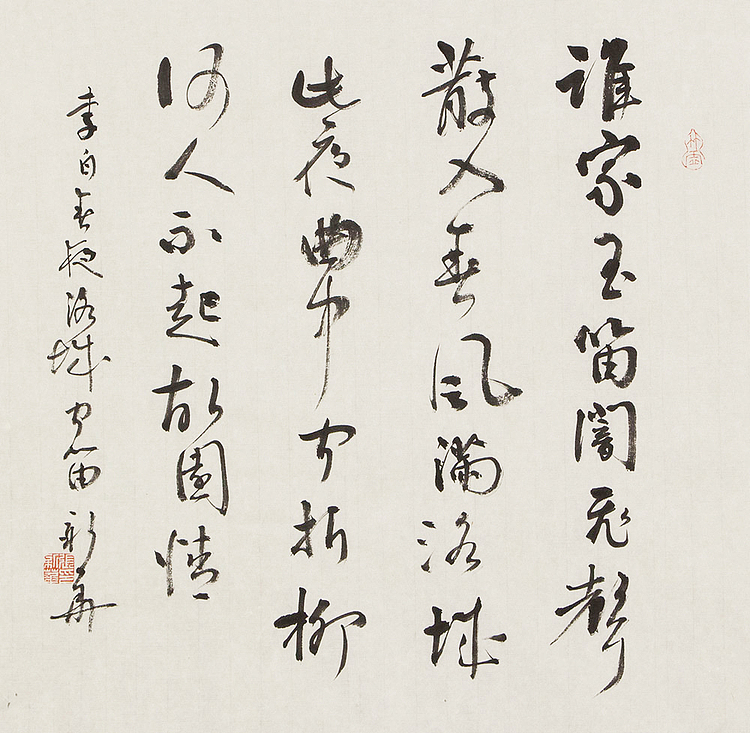 誰家玉笛闇飛聲
散入春風滿洛城
此夜曲中聞折柳
何人不起故園情
李白春夜洛城聞笛 新華